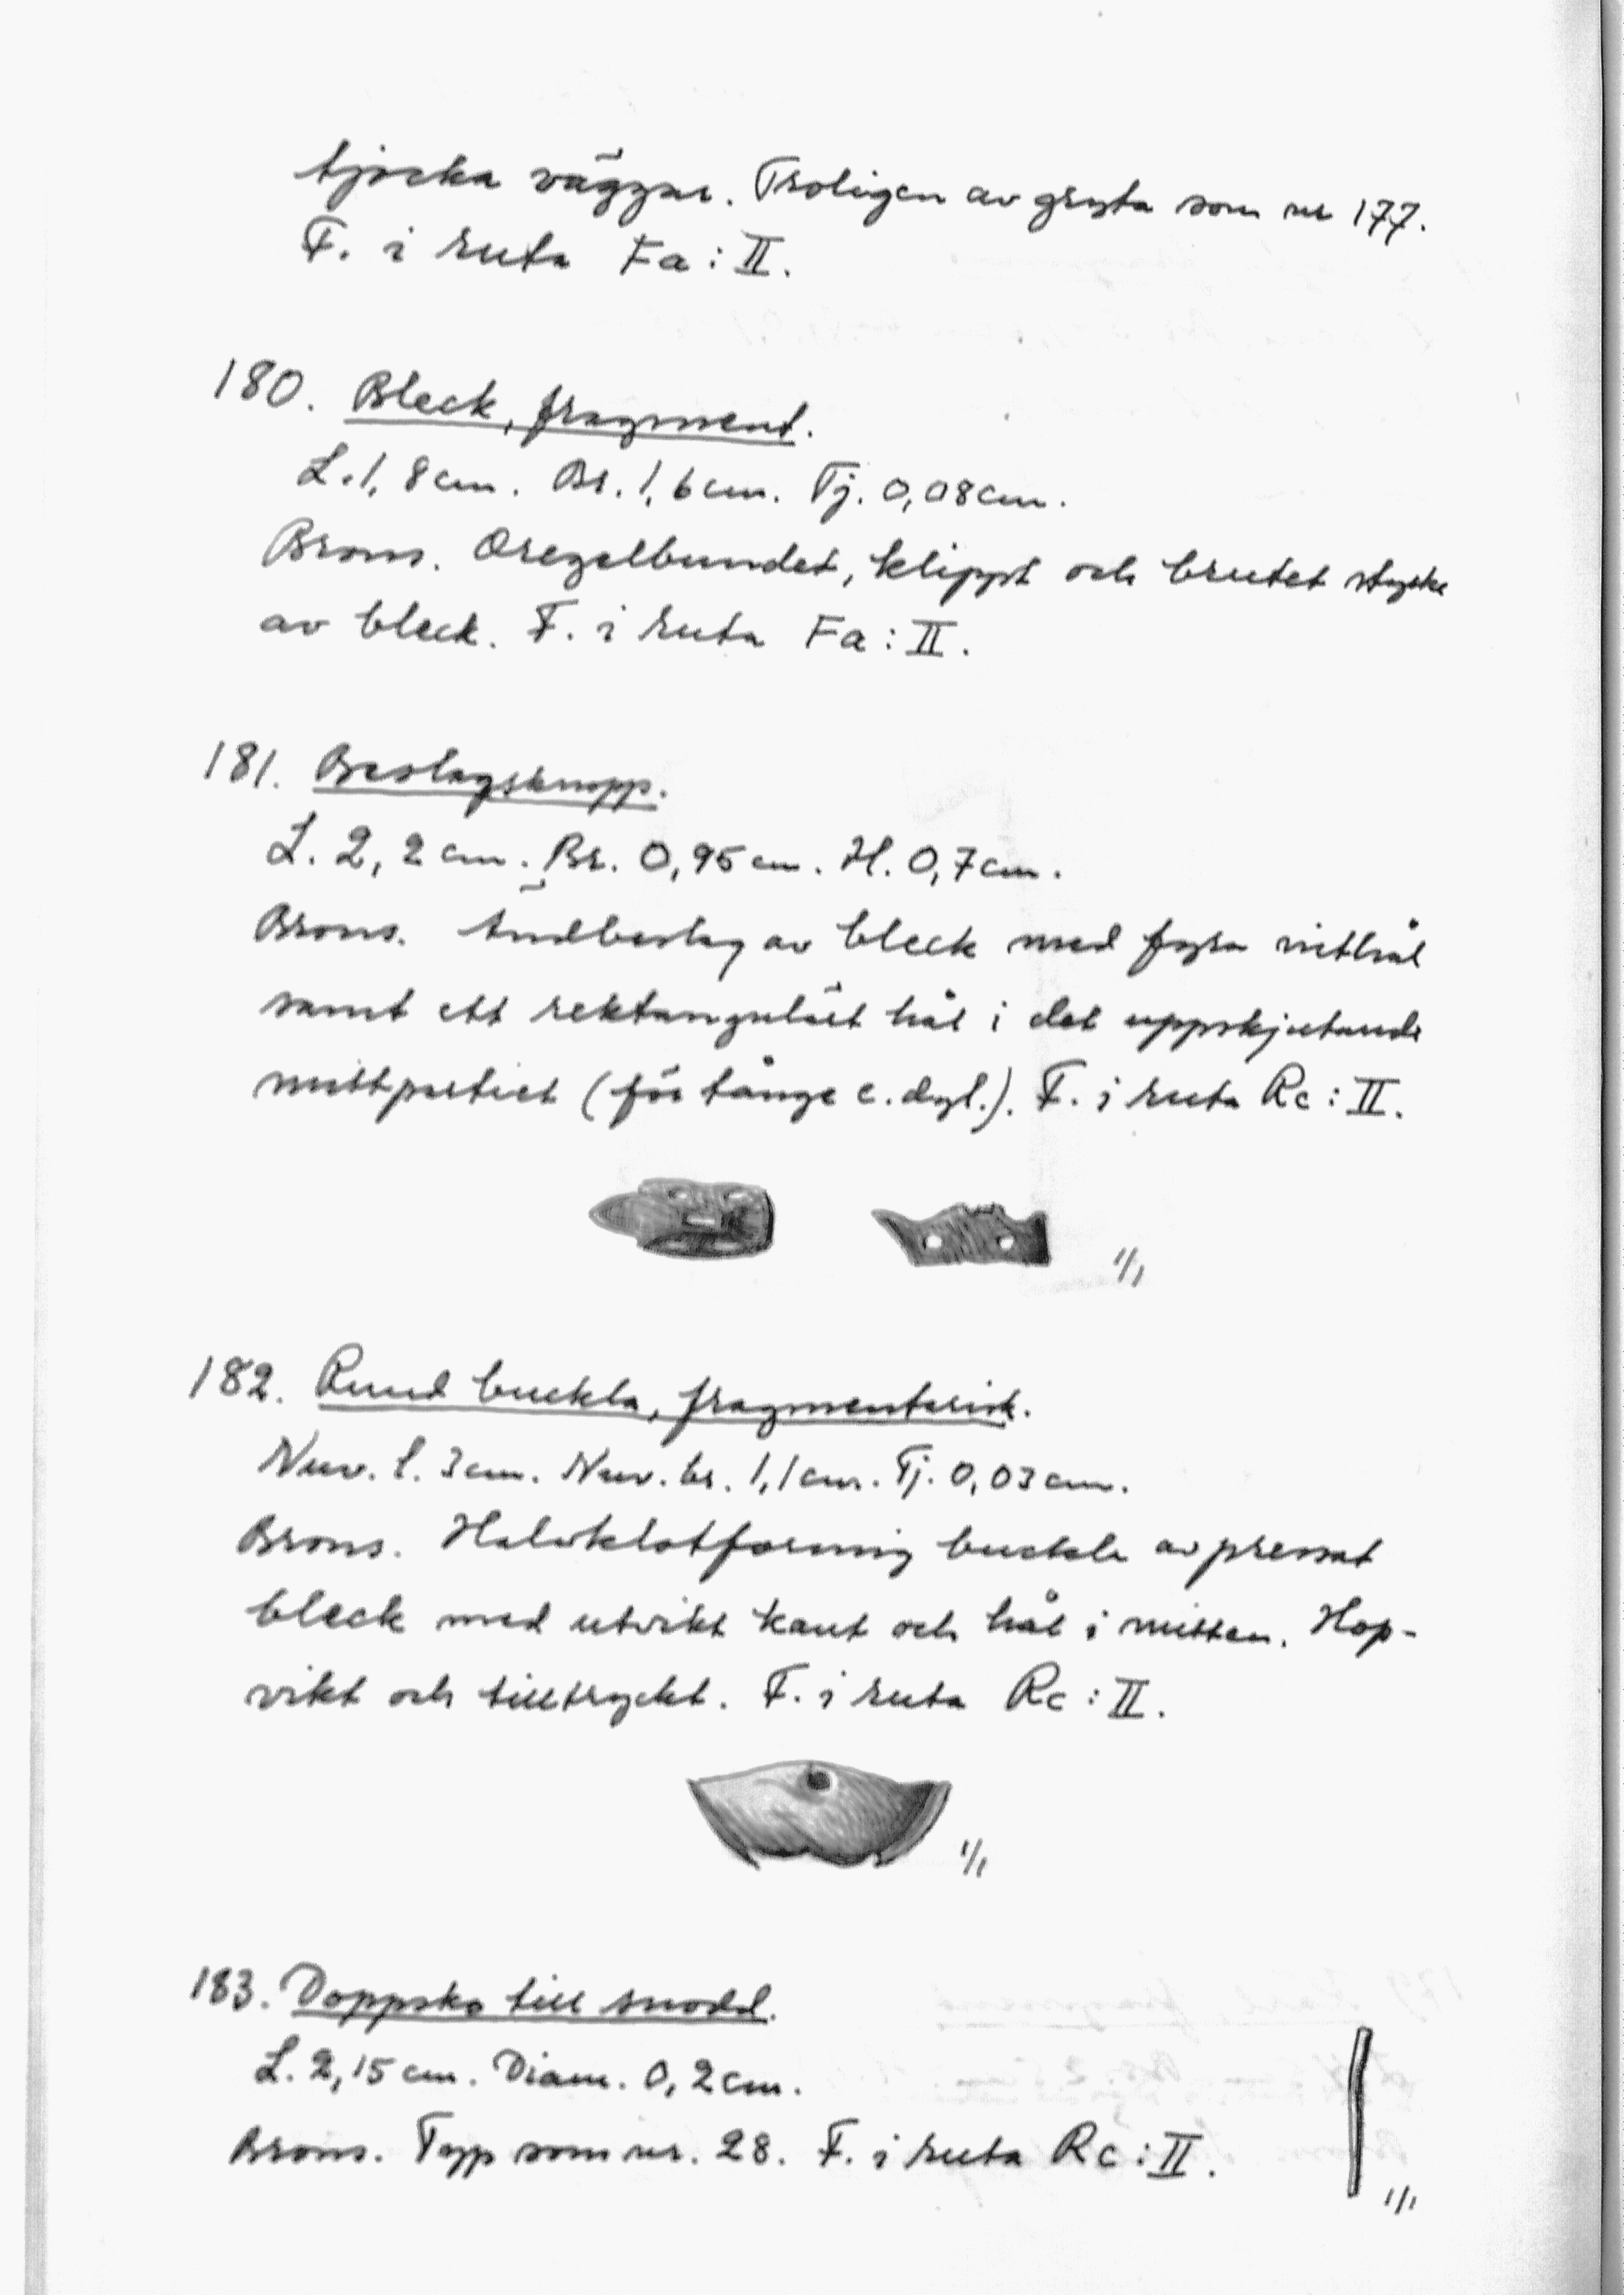 tjocka väggar. Troligen av gryta som nr 177.
F. i ruta Fa:II.
180. Bleck, fragment.
L. 1,8 cm. Br. 1,6 cm. Tj. 0,08 cm.
Brons. Oregelbundet, klippt och brutet stycke
av bleck. F. i ruta Fa:II.
181. Beslagsknopp.
L. 2,2 cm. Br. 0,95 cm. H. 0,7 cm.
Brons. Ändbeslag av bleck med fyra nithål
samt ett rektangulärt hål i det uppskjutande
mittpartiet (för tånge e. dyl.). F. i ruta Rc:II.
1/1
182. Rund buckla, fragmentarisk.
Nuv. l. 3 cm. Nuv. br. 1,1 cm. Tj. 0,03 cm.
Brons. Halvklotformig buckla av pressat
bleck med utvikt kant och hål i mitten. Hop-
vikt och tilltryckt. F. i ruta Rc:II.
1/1
183. Doppsko till snodd.
L. 2,15 cm. Diam. 0,2 cm.
Brons. Typ som nr. 28. F. i ruta Rc:II.
1/1